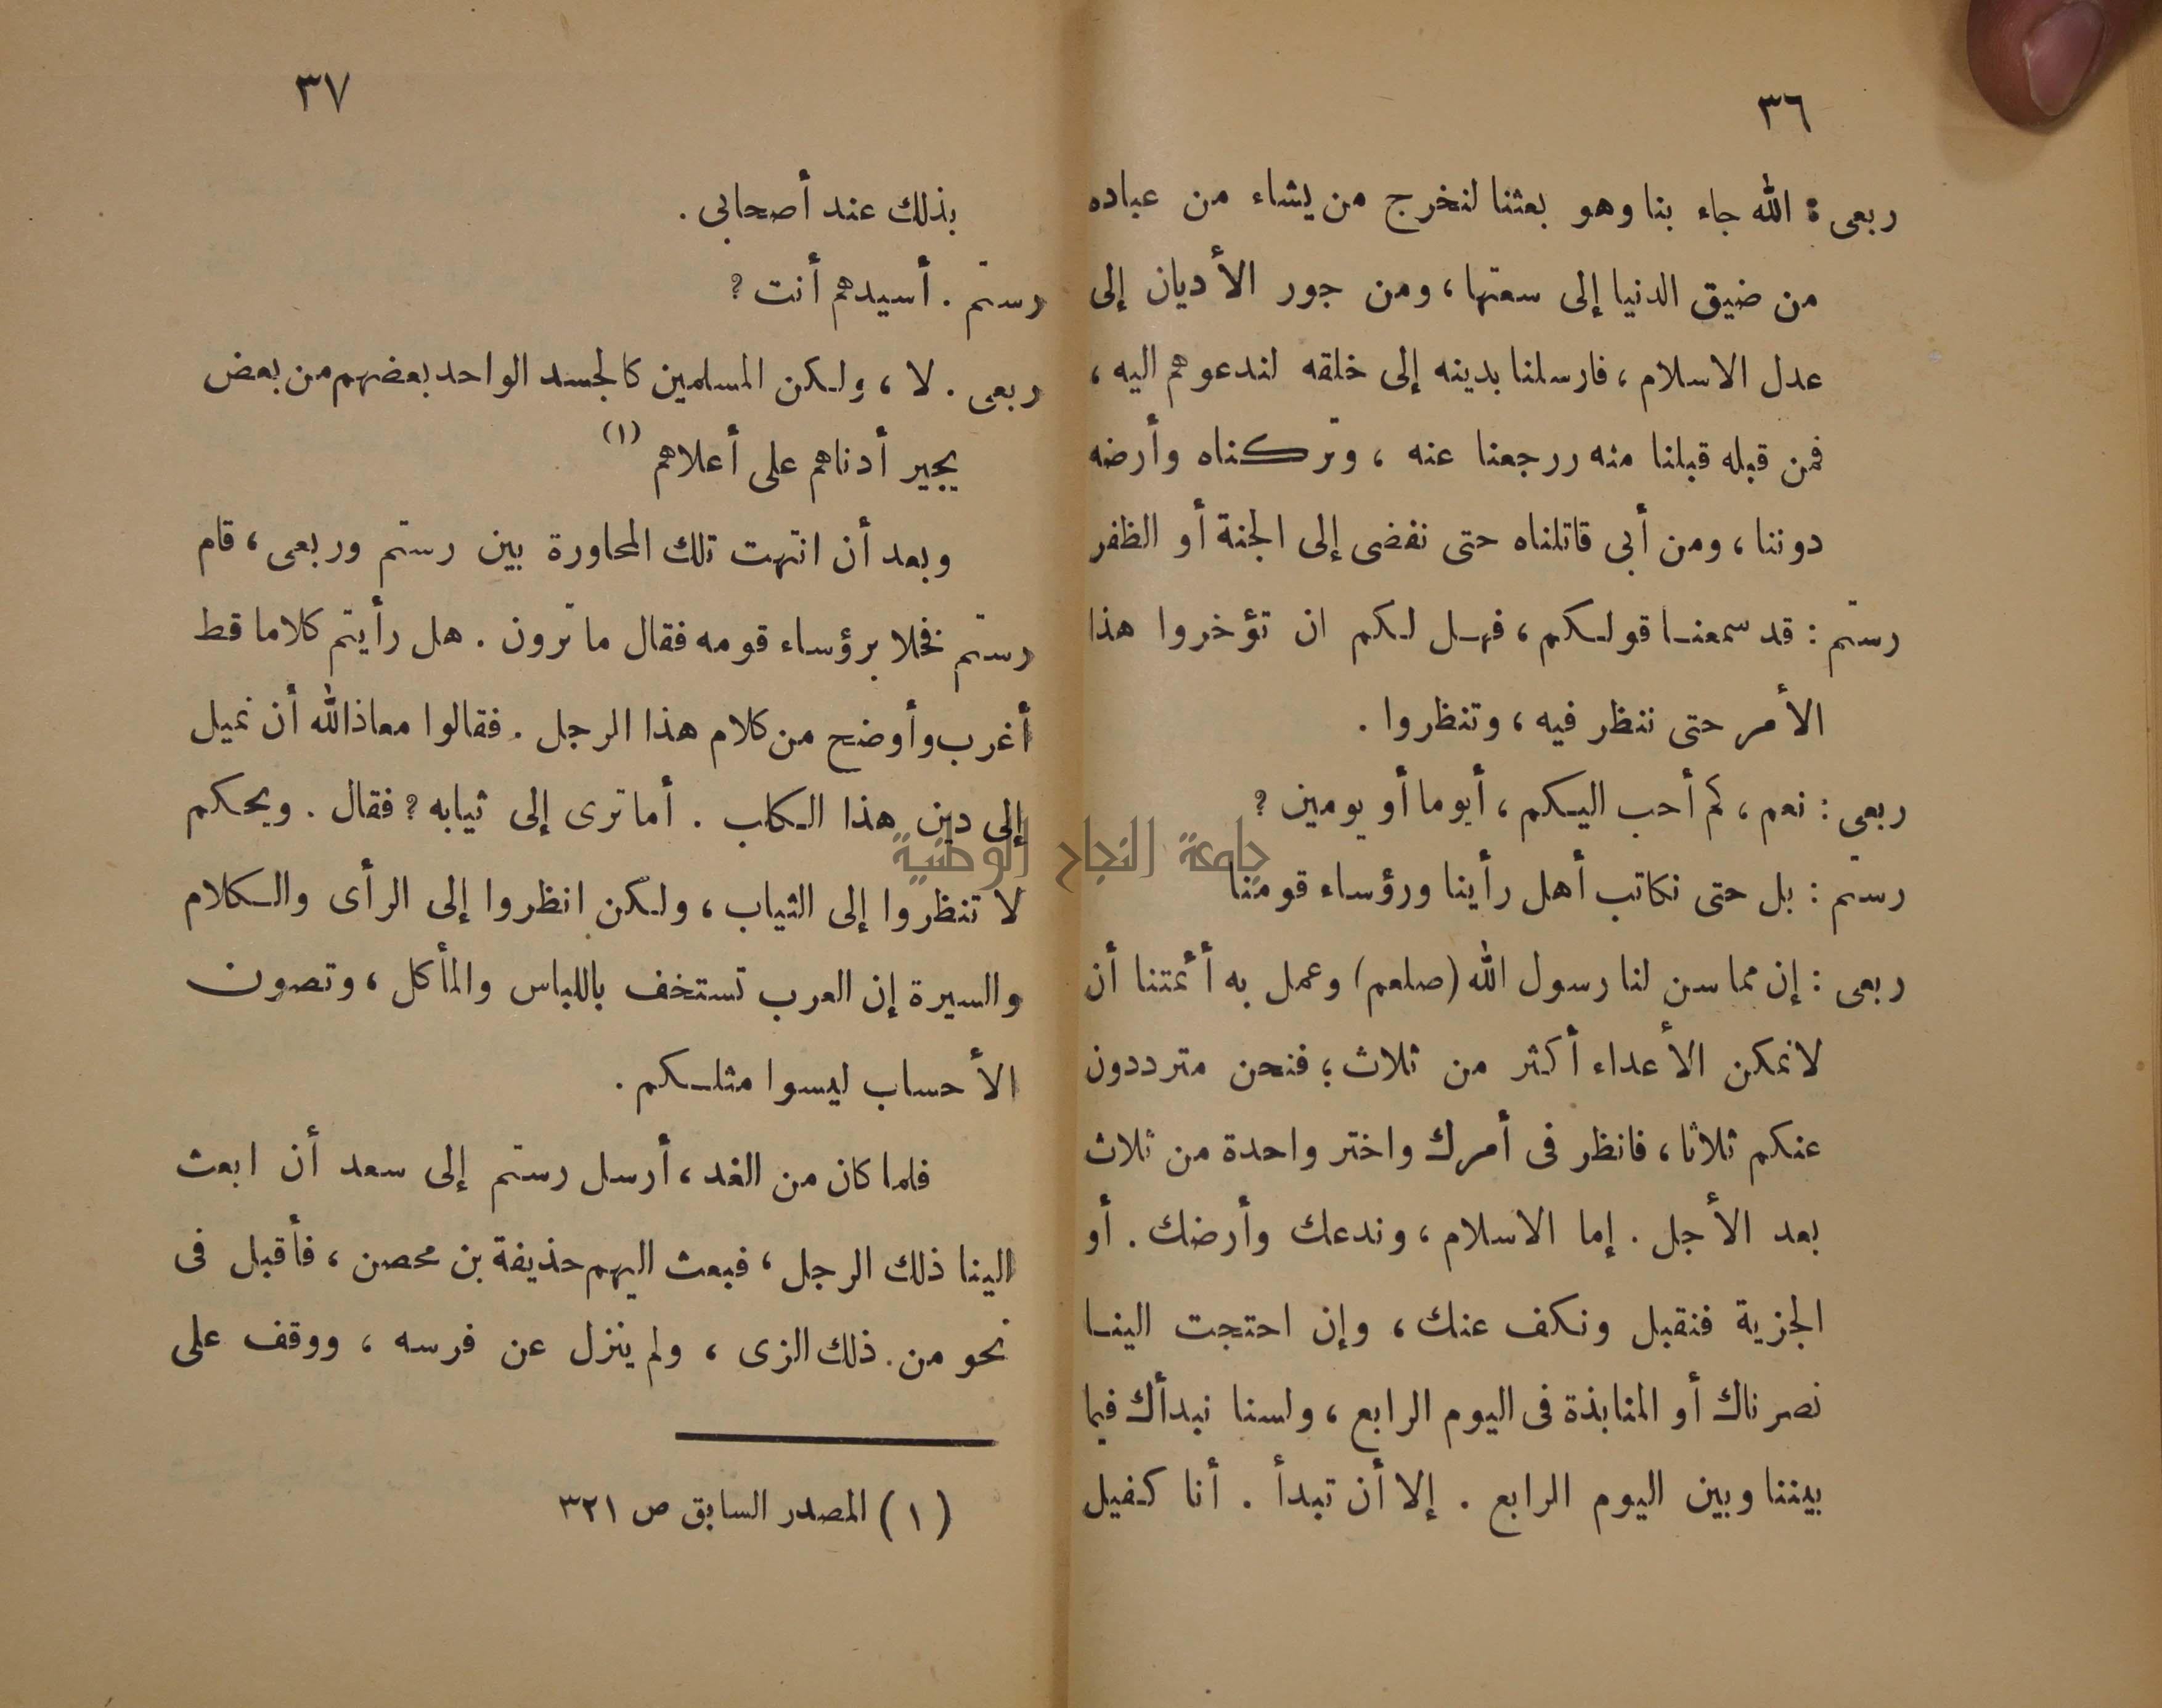 ٣٦
ربعى : الله جاء بنا وهو بعثنا لنخرج من يشاء من عباده
من ضيق الدنيا إلى سعتها ، ومن جور الأديان إلى
عدل الاسلام ، فارسلنا بدينه إلى خلقه لندعوهم اليه ،
فمن قبله قبلنا منه ررجعنا عنه ، وتركناه وأرضه
دوننا ، ومن أبى قاتلناه حتى نفضى إلى الجنة أو الظفر
رستم : قد سمعنا قولكم ، فهل لكم ان تؤخروا هذا
الأمر حتى ننظر فيه ، وتنظروا .
ربعى : نعم ، كم أحب اليكم ، أيوما أو يومين ؟
رستم : بل حتى نكاتب أهل رأينا ورؤساء قومنا
ربعى : إن مما سن لنا رسول الله (صلعم) وعمل به أئمتنا أن
لانمكن الأعداء أكثر من ثلاث ؛ فنحن مترددون
عنكم ثلاثا ، فانظر فى أمرك واختر واحدة من ثلاث
بعد الأجل . إما الاسلام ، وندعك وأرضك . أو
الجزية فنقبل ونكف عنك ، وإن احتجت الينا
نصرناك أو المنابذة فى اليوم الرابع ، ولسنا نبدأك فيما
بيننا وبين اليوم الرابع . إلا أن تبدأ . أنا كفيل
٣٧
بذلك عند أصحابى .
رستم . أسيدهم أنت ؟
ربعى . لا ، ولكن المسلمين كالجسد الواحد بعضهم من بعض
يجير أدناهم على أعلاهم (١)
وبعد أن انتهت تلك المحاورة بين رستم وربعى ، قام
رستم فخلا برؤساء قومه فقال ماترون . هل رأيتم كلاما قط
أغرب وأوضح من كلام هذا الرجل . فقالوا معاذالله أن نميل
إلى دين هذا الكلب . أما ترى إلى ثيابه ؟ فقال . ويحكم
لا تنظروا إلى الثياب ، ولكن انظروا إلى الرأى والكلام
والسيرة إن العرب تستخف باللباس والمأكل ، وتصون
الأحساب ليسوا مثلكم .
فلما كان من الغد ، أرسل رستم إلى سعد أن ابعث
الينا ذلك الرجل ، فبعث اليهم حذيفة بن محصن ، فأقبل فى
نحو من . ذلك الزى ، ولم ينزل عن فرسه ، ووقف على
(١) المصدر السابق ص ٣٢١
جامعة النجاح الوطنية